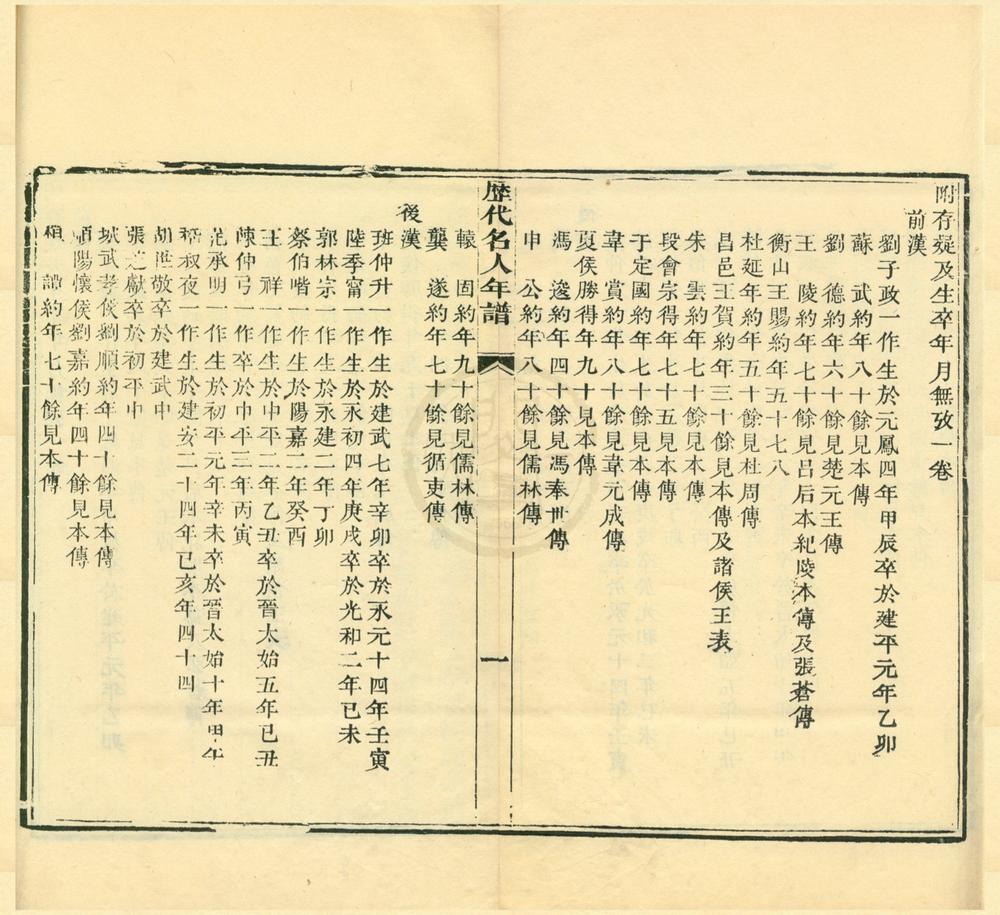 附存疑及生卒年月無攷一卷
前漢
劉子政一作生於元鳳四年甲辰卒於建平元年乙卯
蘇　武約年八十餘見本傳
劉　德約年六十餘見楚元王傳
王　陵約年七十餘見呂后本紀陵本傳及張蒼傳
衡山王賜約年五十七八
杜延年約年五十餘見杜周傳
昌邑王賀約年三十餘見本傳及諸侯王表
朱　雲約年七十餘見本傳
段會宗得年七十五見本傳
于定國約年七十餘見本傳
韋　賞約年八十餘見韋元成傳
夏侯勝得年九十見本傳
馮　逡約年四十餘見馮奉世傳
申　公約年八十餘見儒林傳
歷代名人年譜
一
轅　固約年九十餘見儒林傳
龔　遂約年七十餘見循吏傳
後漢
班仲升一作生於建武七年辛卯卒於永元十四年壬寅
陸季甯一作生於永初四年庚戌卒於光和二年已未
郭林宗一作生於永建二年丁卯
蔡伯喈一作生於陽嘉二年癸酉
王　祥一作生於中平二年乙丑卒於晉太始五年已丑
陳仲弓一作卒於中平三年丙寅
范承明一作生於初平元年辛未卒於晉太始十年甲午
嵇叔夜一作生於建安二十四年已亥年四十四
胡世敬卒於建武中
張之獻卒於初平中
城武孝侯劉順約年四十餘見本傳
順陽懷侯劉嘉約年四十餘見本傳
桓　譚約年七十餘見本傳